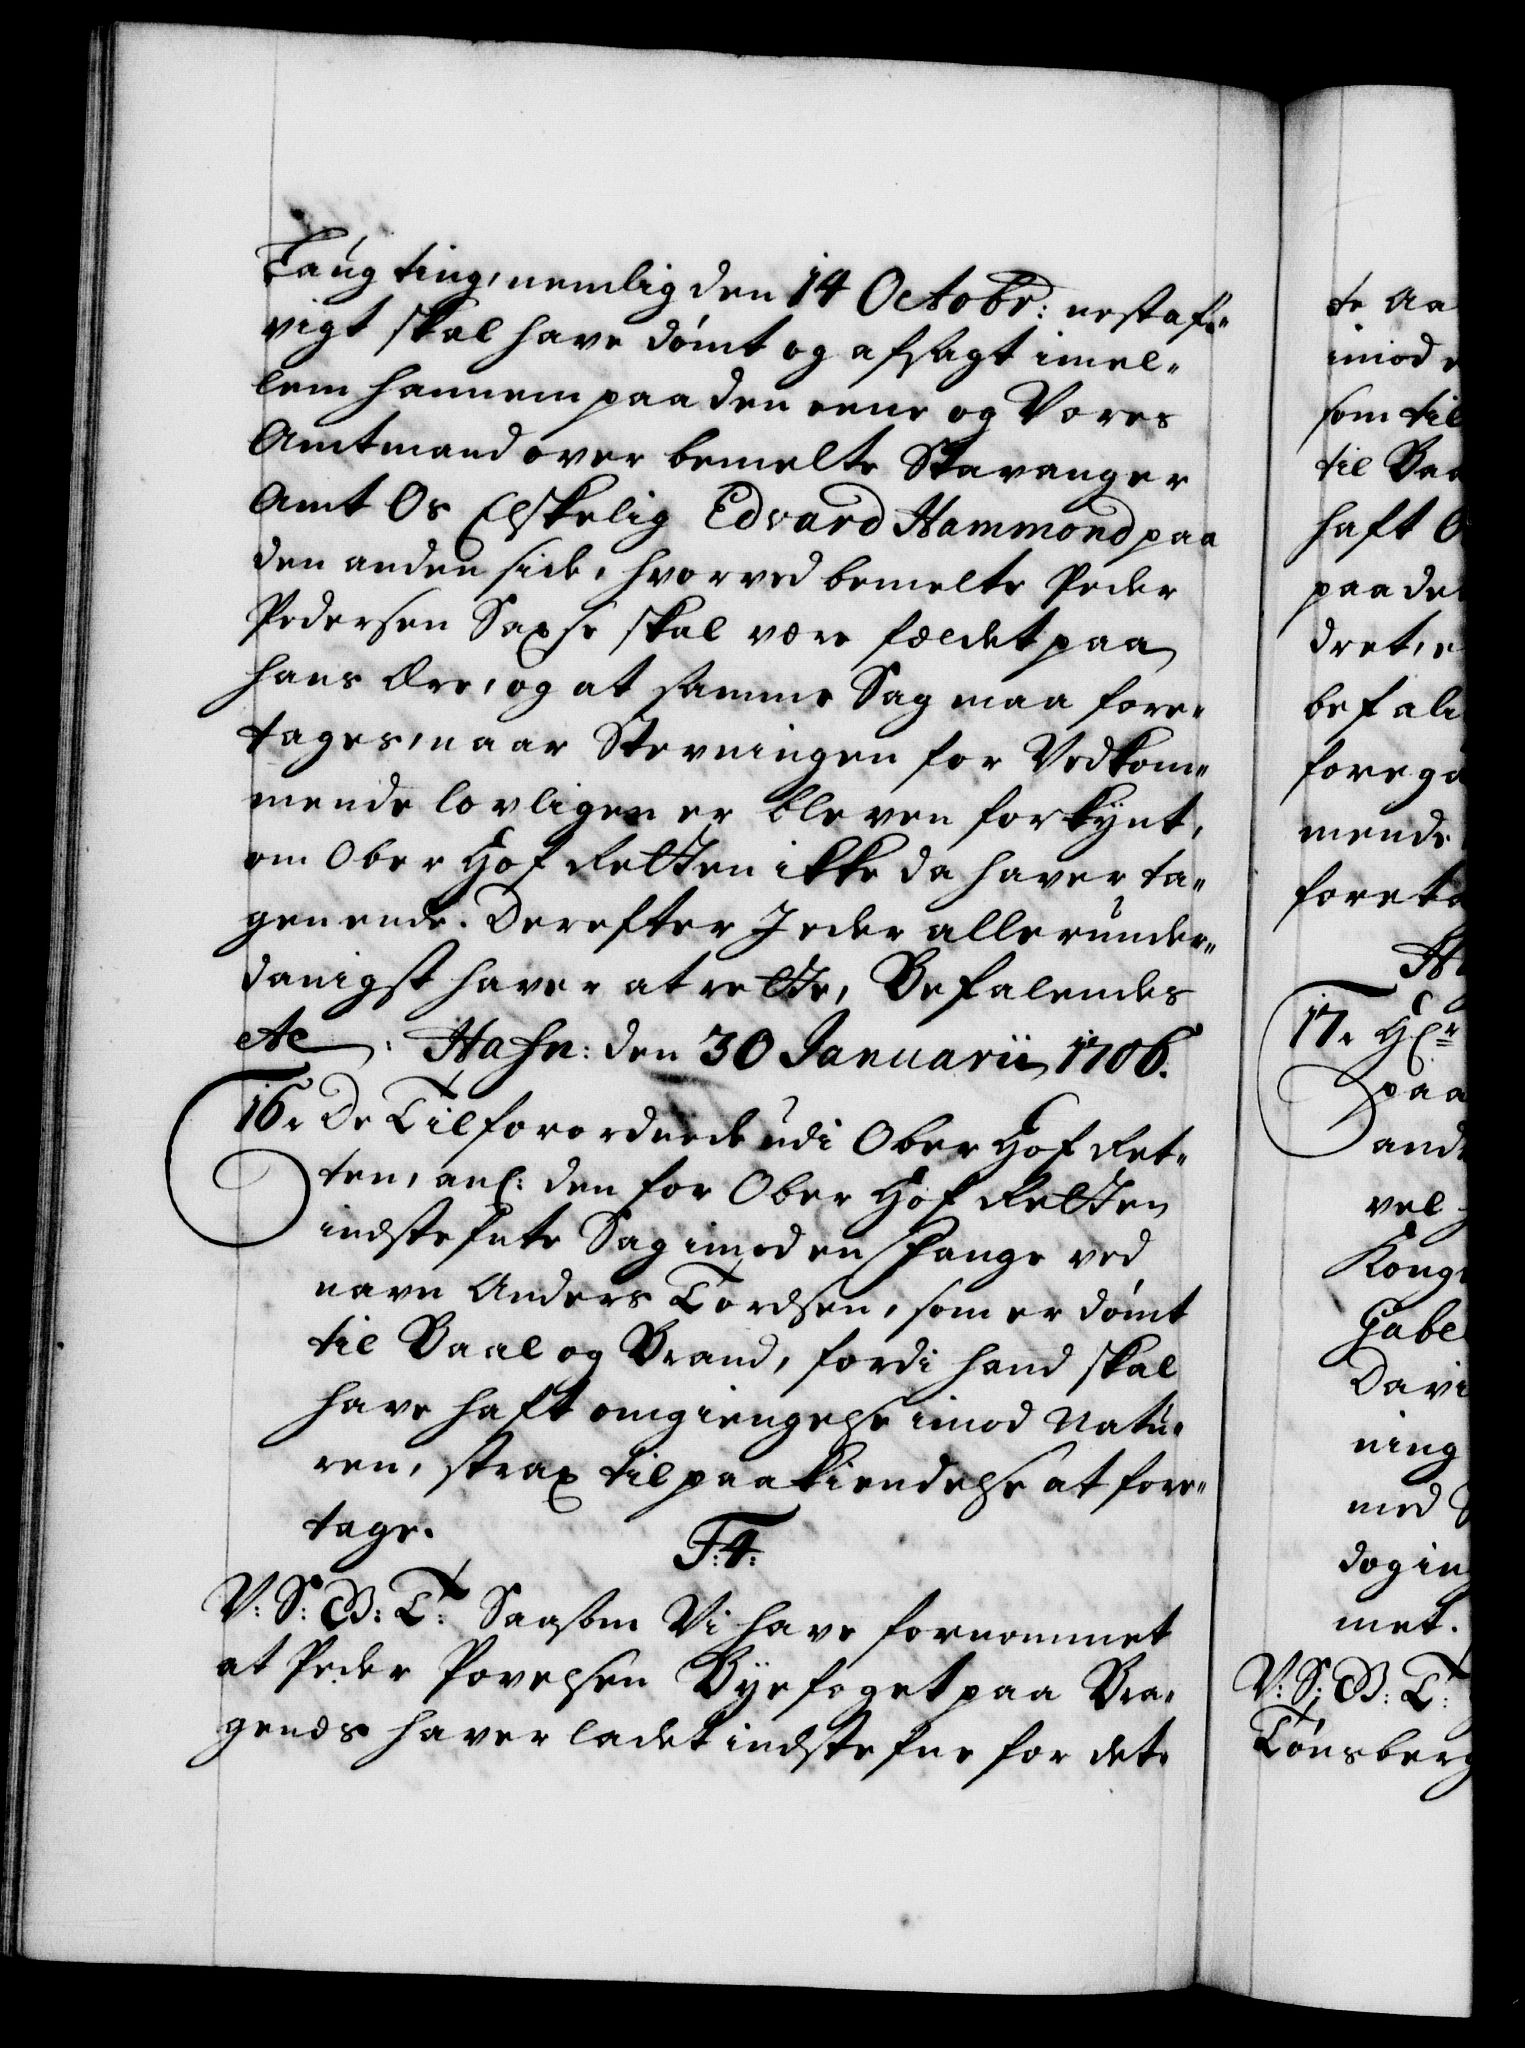 Laugting, nemlig den 14 Octobr: nestaf¬
vigt skal have dømt og afsagt imel¬
lem hannem paa den eene og Vores
Amtmand over bemelte Stavanger
Amt Os Elskelig Edvard Hammond paa
den anden side, hvorved bemelte Peder
Pedersen Saxse skal være fældet paa
hans Ære, og at samme Sag maa fore¬
tages, naar Stevningen for Vedkom¬
mende lovligen er bleven forkynt,
om Ober Hof Retten ikke da haver ta¬
gen ende. Derefter I eder allerunder¬
danigst haver at rette, Befalendes
etc: Hafn: den 30 Januarii 1706.
16. De Tilforordnede udi Ober Hof Ret¬
ten, anl: den for Ober Hof Retten
indstefnte Sag imod en Fange ved
navn Anders Tordsen, som er dømt
til Baal og Brand, fordi hand skal
have haft omgiengelse imod Natu¬
ren, strax til paakiendelse at fore¬
tage.
F:4:
V: S: G: T: Saasom Vi have fornommet
at Peder Povelsen Byefoget paa Bra¬
genæs haver ladet indstefne for det
te Aa
imod
som til
til Baa
haft O
paa de
dret, e
befali
forega
mende
foreta
17. Hr
paa
andt
vel
Konge
Gabe
Davi
ning
med
dog in
met.
V: S: G: T:
Tønsberg